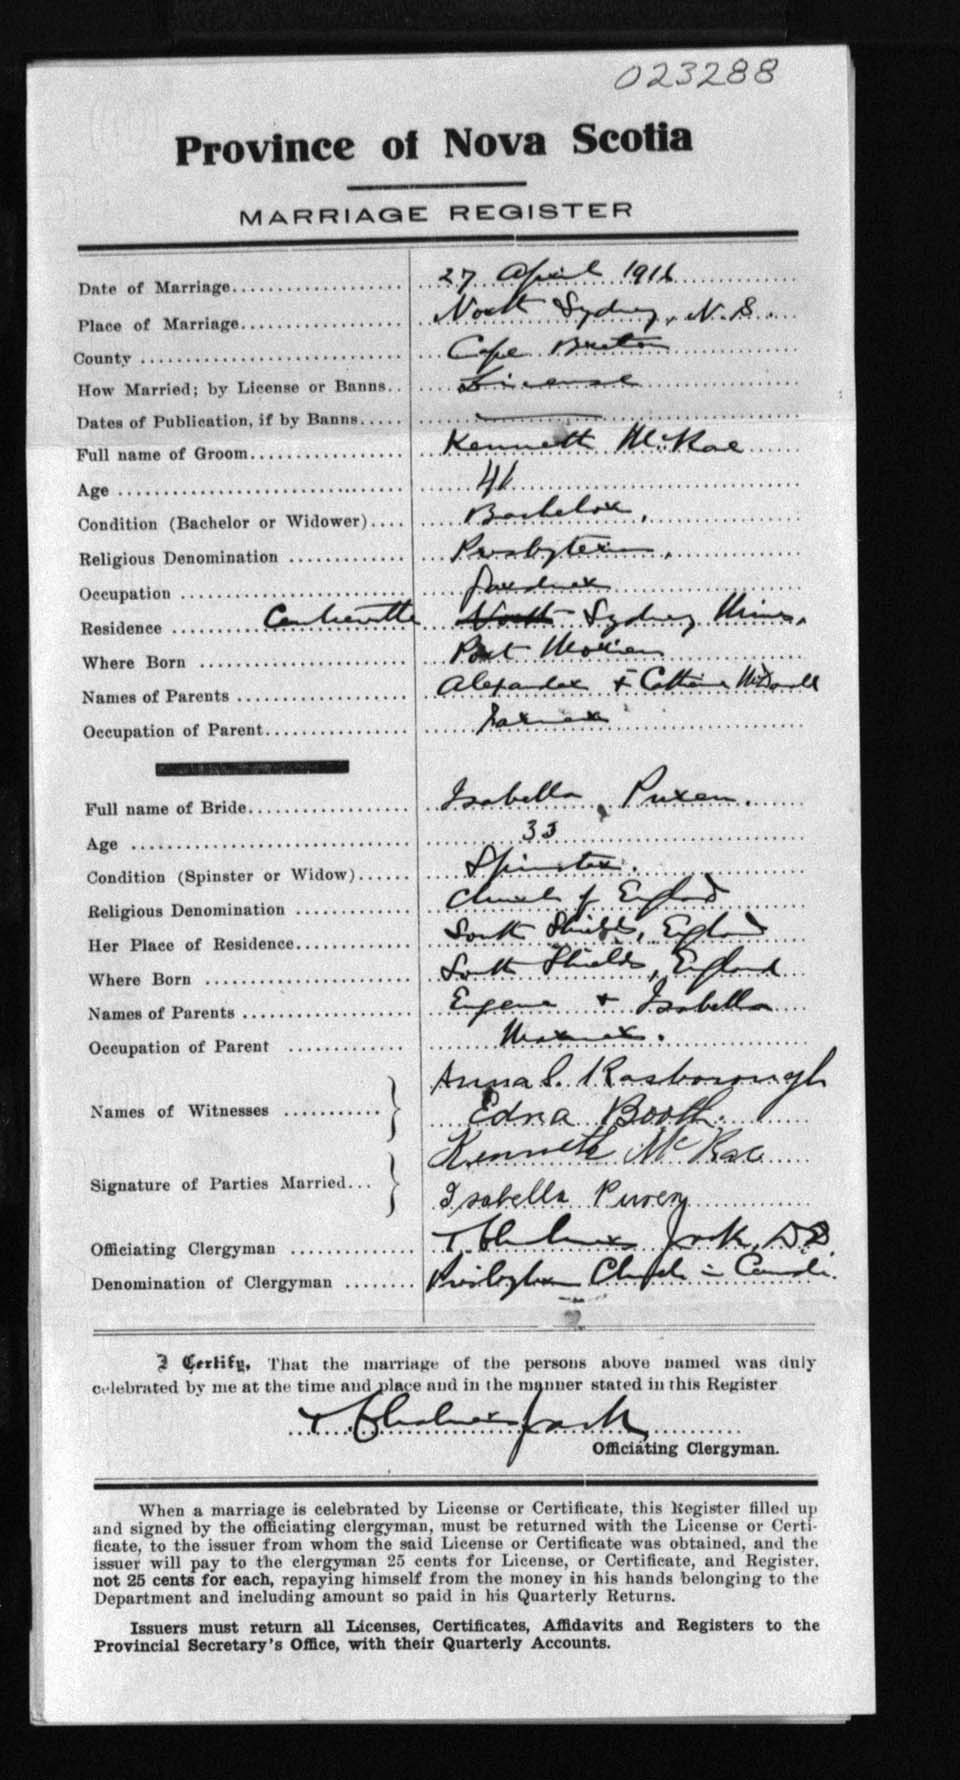 023288
Province of Nova Scotia
MARRIAGE REGISTER
Date of Marriage 27 April 1916
Place of Marriage North Sydney, N.S.
County Cape Breton
How Married; by License or Banns License
Dates of Publication, if by Banns
Full name of Groom Kenneth McRae
Age
Condition (Bachelor or Widower) Bachelor
Religious Denomination Presbyterian
Occupation
Residence North Sydney Mines,
Where Born Port Morien
Names of Parents Alexander & Catherine
Occupation of Parent Farmer
Full name of Bride Isabella Puren.
Age 33
Condition (Spinster or Widow) Spinster.
Religious Denomination Church of England
Her Place of Residence South Shields, England
Where Born South Shields, England
Names of Parents Eugene & Isabella
Occupation of Parent Mariner.
Names of Witnesses Anna S. Rosborough
Edna Booth.
Signature of Parties Married Kenneth McRae
Isabella Puren
Officiating Clergyman T. Chalmers Jack, D.D.
Denomination of Clergyman Presbyterian Church in Canada.
I Certify, That the marriage of the persons above named was duly
celebrated by me at the time and place and in the manner stated in this Register
T. Chalmers Jack
Officiating Clergyman.
When a marriage is celebrated by License or Certificate, this Register filled up
and signed by the officiating clergyman, must be returned with the License or Certi-
ficate, to the issuer from whom the said License or Certificate was obtained, and the
issuer will pay to the clergyman 25 cents for License, or Certificate, and Register,
not 25 cents for each, repaying himself from the money in his hands belonging to the
Department and including amount so paid in his Quarterly Returns.
Issuers must return all Licenses, Certificates, Affidavits and Registers to the
Provincial Secretary's Office, with their Quarterly Accounts.